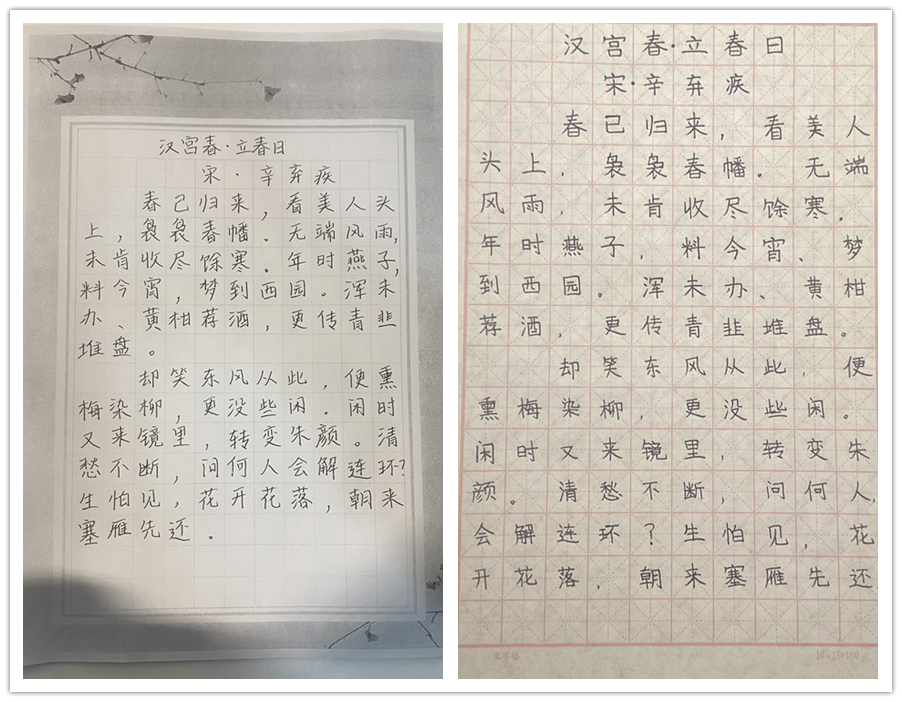 汉宫春·立春日
宋·辛弃疾
春已归来,看美人头
上,袅袅春幡.无端风雨,
未肯收尽馀寒.年时燕子,
料今宵,梦到西园。浑未
办、黄柑荐酒,更传青韭
堆盘。
却笑东风从此,便熏
梅染柳,更没些闲.闲时
又来镜里,转变朱颜。清
愁不断,问何人会解连环?
生怕见,花开花落,朝来
塞雁先还.
汉宫春·立春日
宋·辛弃疾
春已归来,看美人
头上,袅袅春幡.无端
风雨,未肯收尽馀寒.
年时燕子,料今宵、梦
到西园。浑未办、黄柑
荐酒,更传青韭堆盘。
却笑东风从此,便
熏梅染柳,更没些闲。
闲时又来镜里,转变朱
颜。清愁不断,问何人,
会解连环?生怕见,花
开花落,朝来塞雁先还
米字格
10×15=150